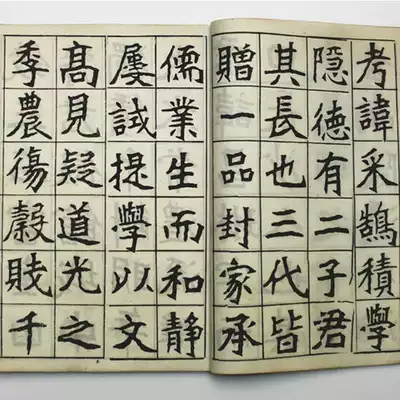 考諱采鵠積學
隱德有二子君
其長也三代皆
贈一品封家承
儒業生而和靜
屢試提學以文
髙見疑道光之
季農傷穀賤千